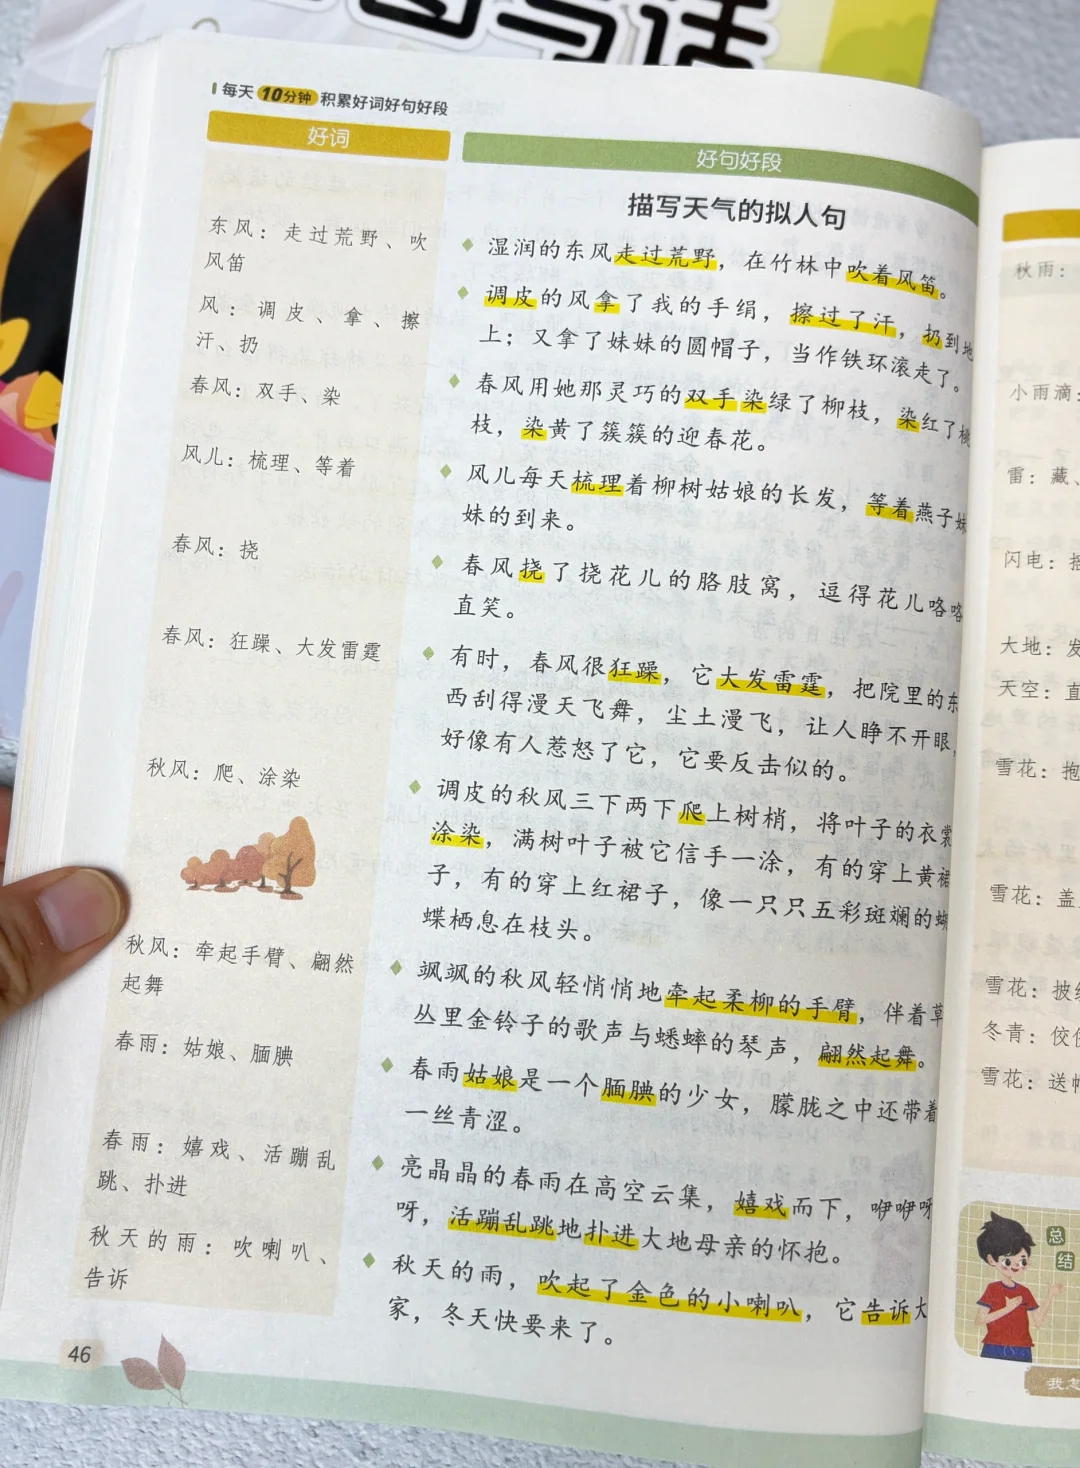 写话
每天10分钟 积累好词好句好段
好词
东风：走过荒野、吹
风笛
风：调皮、拿、擦
汗、扔
春风：双手、染
风儿：梳理、等着
春风：挠
春风：狂躁、大发雷霆
秋风：爬、涂染
秋风：牵起手臂、翩然
起舞
春雨：姑娘、腼腆
春雨：嬉戏、活蹦乱
跳、扑进
秋天的雨：吹喇叭、
告诉
46
好句好段
描写天气的拟人句
湿润的东风走过荒野，在竹林中吹着风笛。
调皮的风拿了我的手绢，擦过了汗，扔到地
上；又拿了妹妹的圆帽子，当作铁环滚走了。
春风用她那灵巧的双手染绿了柳枝，染红了桃
枝，染黄了簇簇的迎春花。
风儿每天梳理着柳树姑娘的长发，等着燕子妹
妹的到来。
春风挠了挠花儿的胳肢窝，逗得花儿咯咯
直笑。
有时，春风很狂躁，它大发雷霆，把院里的东
西刮得漫天飞舞，尘土漫飞，让人睁不开眼，
好像有人惹怒了它，它要反击似的。
调皮的秋风三下两下爬上树梢，将叶子的衣裳
涂染，满树叶子被它信手一涂，有的穿上黄裙
子，有的穿上红裙子，像一只只五彩斑斓的蝴
蝶栖息在枝头。
飒飒的秋风轻悄悄地牵起柔柳的手臂，伴着草
丛里金铃子的歌声与蟋蟀的琴声，翩然起舞。
春雨姑娘是一个腼腆的少女，朦胧之中还带着
一丝青涩。
亮晶晶的春雨在高空云集，嬉戏而下，咿咿呀
呀，活蹦乱跳地扑进大地母亲的怀抱。
秋天的雨，吹起了金色的小喇叭，它告诉大
家，冬天快要来了。
秋雨：
小雨滴：
雷：藏、
闪电：摇
大地：发
天空：直
雪花：抱
雪花：盖
雪花：披
冬青：佼
雪花：送
总
结
我怎